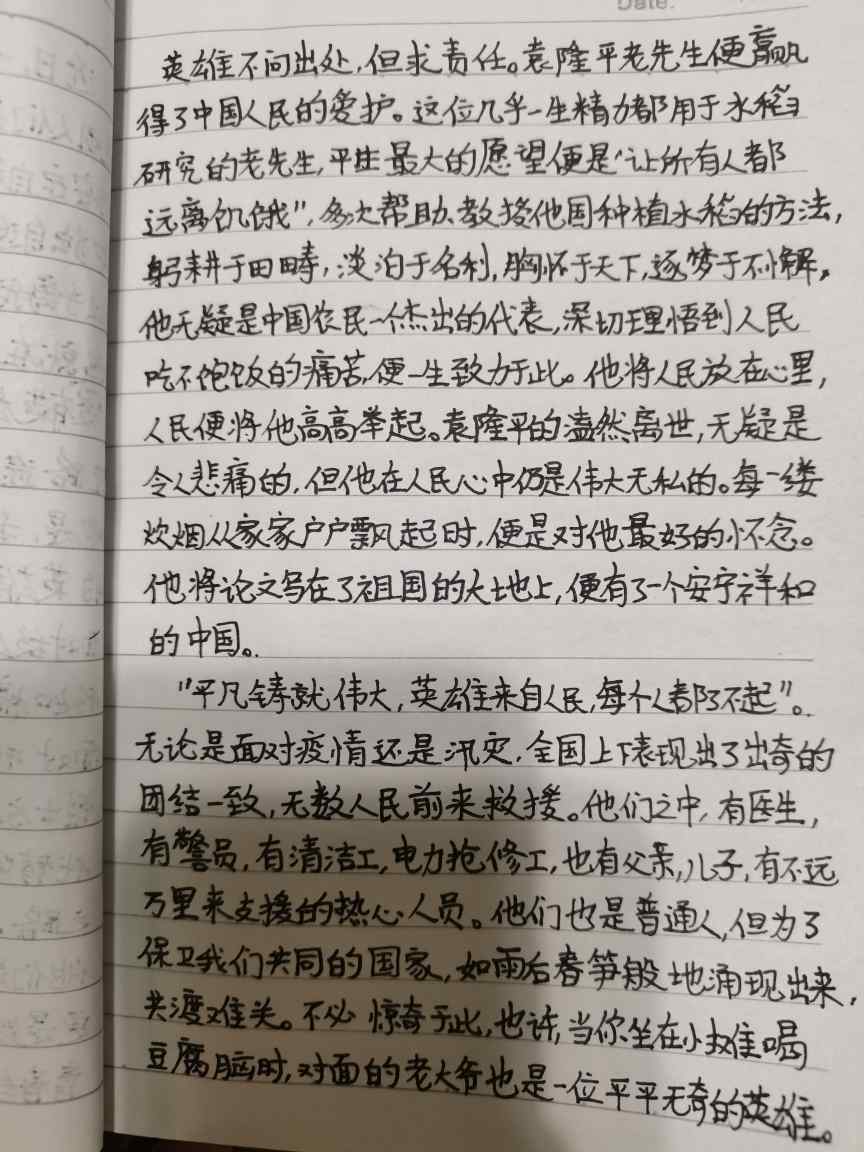 Date.
英雄不问出处，但求责任。袁隆平老先生便赢
得了中国人民的爱护。这位几乎一生精力都用于水稻
研究的老先生，平生最大的愿望便是"让所有人都
远离饥饿"，多次帮助、教授他国种植水稻的方法，
躬耕于田畴，淡泊于名利，胸怀于天下，逐梦于不懈。
他无疑是中国农民一个杰出的代表，深切理悟到人民
吃不饱饭的痛苦，便一生致力于此。他将人民放在心里，
人民便将他高高举起。袁隆平的溘然离世，无疑是
令人悲痛的，但他在人民心中仍是伟大无私的。每一缕
炊烟从家家户户飘起时，便是对他最好的怀念。
他将论文写在了祖国的大地上，便有了一个安宁祥和
的中国。
"平凡铸就伟大，英雄来自人民，每个人都了不起"。
无论是面对疫情还是汛灾，全国上下表现出了出奇的
团结一致，无数人民前来救援。他们之中，有医生，
有警员，有清洁工，电力抢修工，也有父亲，儿子，有不远
万里来支援的热心人员。他们也是普通人，但为了
保卫我们共同的国家，如雨后春笋般地涌现出来，
共渡难关。不必惊奇于此，也许，当你坐在小摊喝
豆腐脑时，对面的老大爷也是一位平平无奇的英雄。